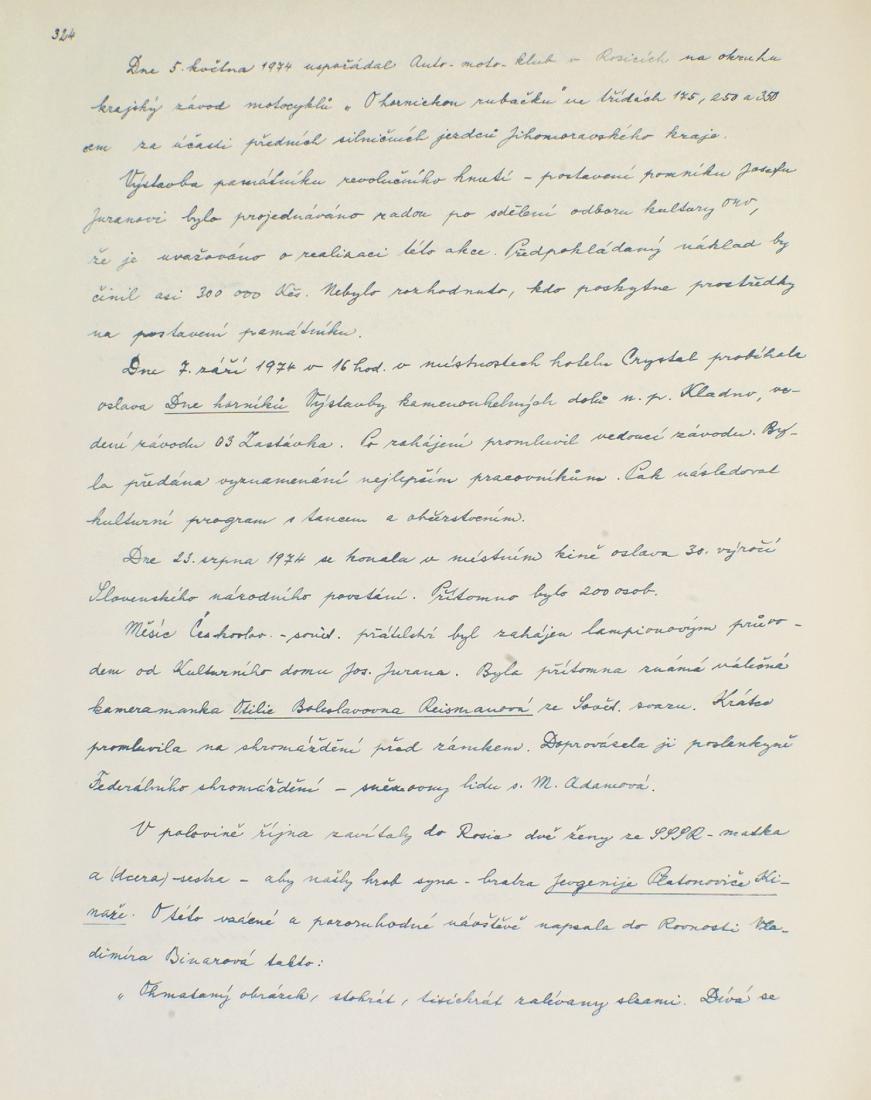 324
Dne 5. května 1974 uspořádal Auto-moto-klub v Rosicích na okruhu
krajský závod motocyklů „O hornickou rubačku" ve třídách 175, 250 a 350
cm za účasti předních silničních jezdců Jihomoravského kraje.
Výstavba památníku revolučního hnutí - postavení pomníku Josefu
Juranovi bylo projednáváno radou po sdělení odboru kultury ONV,
že je uvažováno o realizaci této akce. Předpokládaný náklad by
činil asi 300 000 Kčs. Nebylo rozhodnuto, kdo poskytne prostředky
na postavení památníku.
Dne 7. září 1974 v 16 hod. v místnostech hotelu Crystal probíhala
oslava Dne horníků Výstavby kamenouhelných dolů n. p. Kladno, ve-
dení závodu 03 Zastávka. Po zahájení promluvil vedoucí závodu. By-
la předána vyznamenání nejlepším pracovníkům. Pak následoval
kulturní program s tancem a občerstvením.
Dne 23. srpna 1974 se konala v místním kině oslava 30. výročí
Slovenského národního povstání. Přítomno bylo 200 osob.
Měsíc Českoslov. - sovět. přátelství byl zahájen lampionovým průvo-
dem od Kulturního domu Jos. Jurana. Byla přítomna známá válečná
kameramanka Otilie Boleslavovna Reismanová ze Sovět. svazu. Krátce
promluvila na shromáždění před zámkem. Doprovázela ji poslankyně
Federálního shromáždění - sněmovny lidu s. M. Adamová.
V polovině října zavítaly do Rosic dvě ženy ze SSSR - matka
a (dcera) - sestra - aby našly hrob syna - bratra Jevgenije Platonoviče Ki-
naže. O této vzácné a pozoruhodné návštěvě napsala do Rovnosti Vla-
dimíra Binarová takto:
„Ohmataný obrázek, stokrát, tisíckrát zalívaný slzami. Dívá se